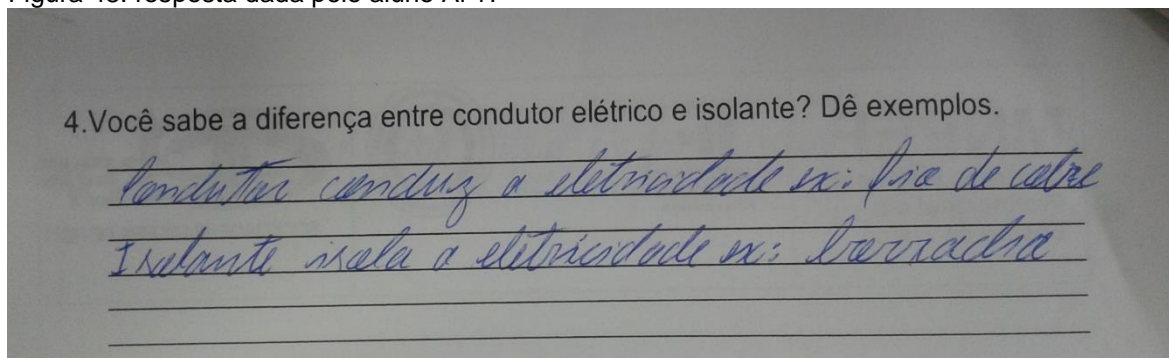 4.Você sabe a diferença entre condutor elétrico e isolante? Dê exemplos.
Condutor conduz a eletricidade ex: fio de cobre
Isolante isola a eletricidade ex: borracha